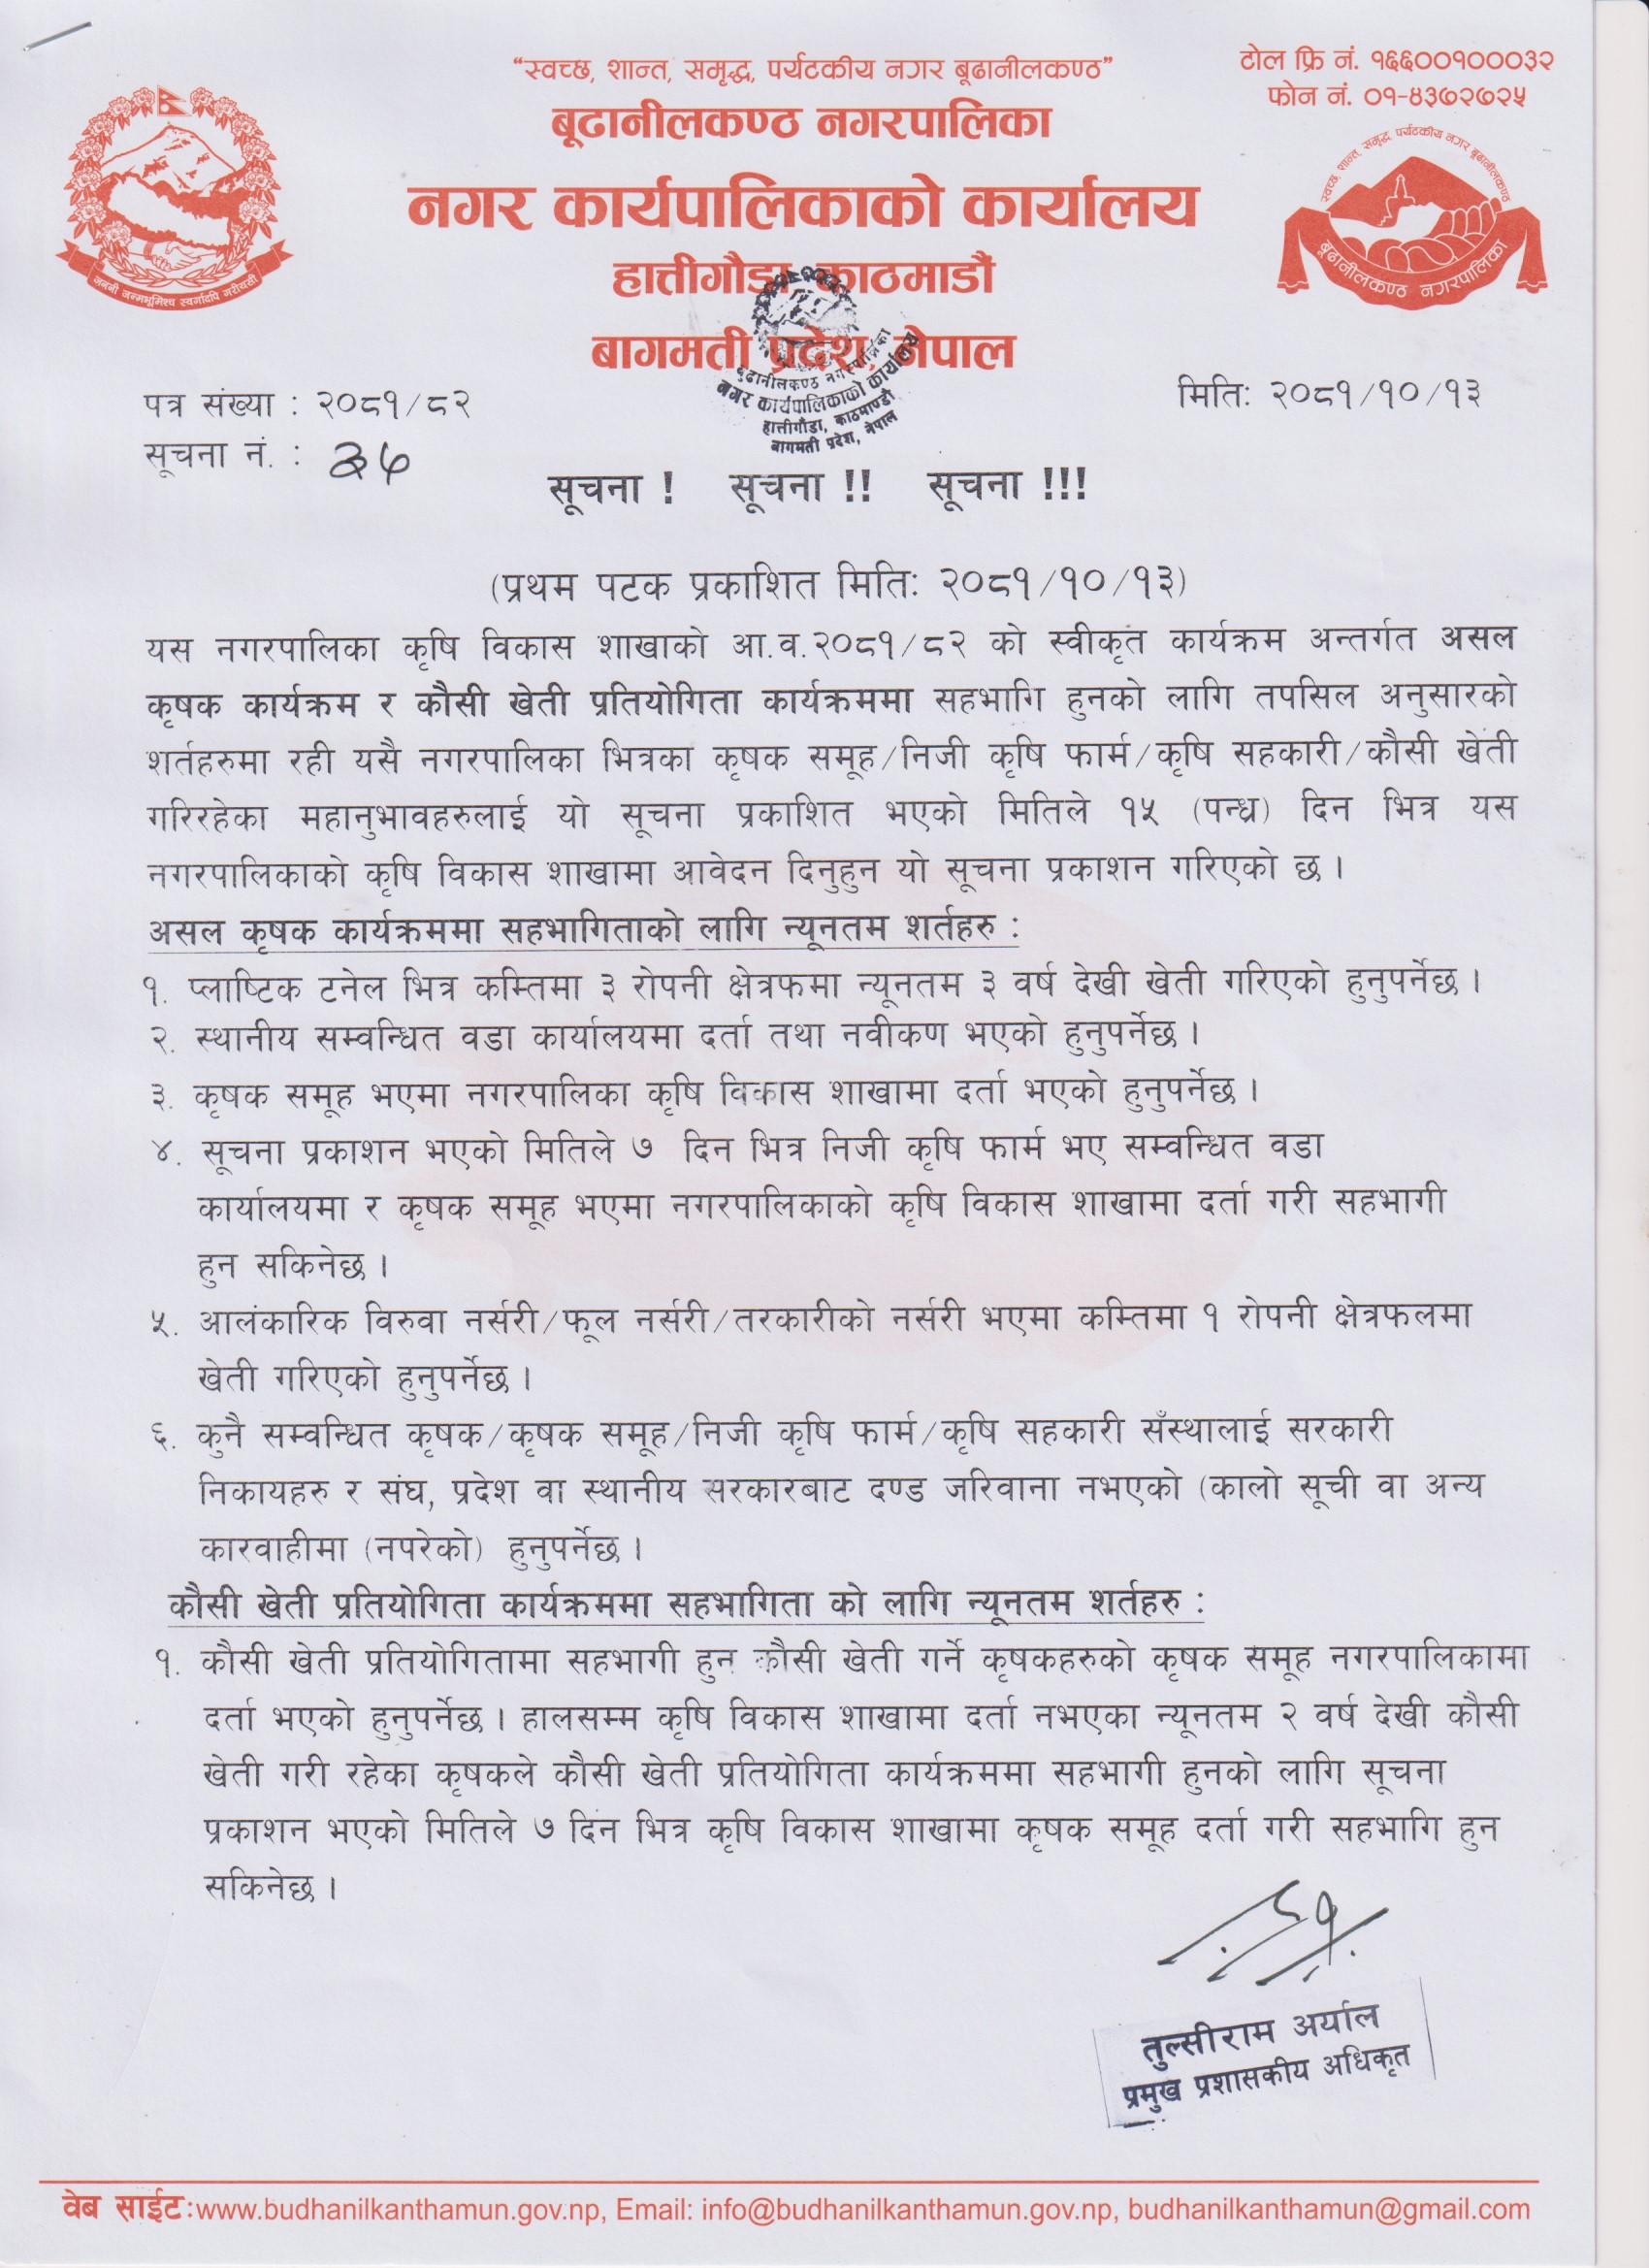 “स्वच्छ, शान्त, समृद्ध, पर्यटकीय नगर बूढानीलकण्ठ”
टोल फ्रि नं. १६६००१०००३२
फोन नं. ०१-४३७२७२५
बूढानीलकण्ठ नगरपालिका
नगर कार्यपालिकाको कार्यालय
हात्तीगौडा, काठमाडौं
बागमती प्रदेश, नेपाल
जननी जन्मभूमिश्च स्वर्गादपि गरीयसी
स्वच्छ, शान्त, समृद्ध, पर्यटकीय नगर बूढानीलकण्ठ
बूढानीलकण्ठ नगरपालिका
बुढानीलकण्ठ नगरपालिका
नगर कार्यपालिकाको कार्यालय
हात्तीगौंडा, काठमाण्डौ
बागमती प्रदेश, नेपाल
पत्र संख्या : २०८१/८२
मितिः २०८१/१०/१३
सूचना नं. : ३५
सूचना ! सूचना !! सूचना !!!
(प्रथम पटक प्रकाशित मितिः २०८१/१०/१३)
यस नगरपालिका कृषि विकास शाखाको आ.व.२०८१/८२ को स्वीकृत कार्यक्रम अन्तर्गत असल
कृषक कार्यक्रम र कौसी खेती प्रतियोगिता कार्यक्रममा सहभागि हुनको लागि तपसिल अनुसारको
शर्तहरुमा रही यसै नगरपालिका भित्रका कृषक समूह/निजी कृषि फार्म/कृषि सहकारी/कौसी खेती
गरिरहेका महानुभावहरुलाई यो सूचना प्रकाशित भएको मितिले १५ (पन्ध्र) दिन भित्र यस
नगरपालिकाको कृषि विकास शाखामा आवेदन दिनुहुन यो सूचना प्रकाशन गरिएको छ ।
असल कृषक कार्यक्रममा सहभागिताको लागि न्यूनतम शर्तहरु :
१. प्लाष्टिक टनेल भित्र कम्तिमा ३ रोपनी क्षेत्रफमा न्यूनतम ३ वर्ष देखी खेती गरिएको हुनुपर्नेछ ।
२. स्थानीय सम्वन्धित वडा कार्यालयमा दर्ता तथा नवीकण भएको हुनुपर्नेछ ।
३. कृषक समूह भएमा नगरपालिका कृषि विकास शाखामा दर्ता भएको हुनुपर्नेछ ।
४. सूचना प्रकाशन भएको मितिले ७ दिन भित्र निजी कृषि फार्म भए सम्वन्धित वडा
कार्यालयमा र कृषक समूह भएमा नगरपालिकाको कृषि विकास शाखामा दर्ता गरी सहभागी
हुन सकिनेछ ।
५. आलंकारिक विरुवा नर्सरी/फूल नर्सरी/तरकारीको नर्सरी भएमा कम्तिमा १ रोपनी क्षेत्रफलमा
खेती गरिएको हुनुपर्नेछ ।
६. कुनै सम्वन्धित कृषक/कृषक समूह/निजी कृषि फार्म/कृषि सहकारी सँस्थालाई सरकारी
निकायहरु र संघ, प्रदेश वा स्थानीय सरकारबाट दण्ड जरिवाना नभएको (कालो सूची वा अन्य
कारवाहीमा (नपरेको) हुनुपर्नेछ ।
कौसी खेती प्रतियोगिता कार्यक्रममा सहभागिता को लागि न्यूनतम शर्तहरु :
१. कौसी खेती प्रतियोगितामा सहभागी हुन कौसी खेती गर्ने कृषकहरुको कृषक समूह नगरपालिकामा
दर्ता भएको हुनुपर्नेछ । हालसम्म कृषि विकास शाखामा दर्ता नभएका न्यूनतम २ वर्ष देखी कौसी
खेती गरी रहेका कृषकले कौसी खेती प्रतियोगिता कार्यक्रममा सहभागी हुनको लागि सूचना
प्रकाशन भएको मितिले ७ दिन भित्र कृषि विकास शाखामा कृषक समूह दर्ता गरी सहभागि हुन
सकिनेछ ।
तुल्सीराम अर्याल
प्रमुख प्रशासकीय अधिकृत
वेब साईटः www.budhanilkanthamun.gov.np, Email: info@budhanilkanthamun.gov.np, budhanilkanthamun@gmail.com